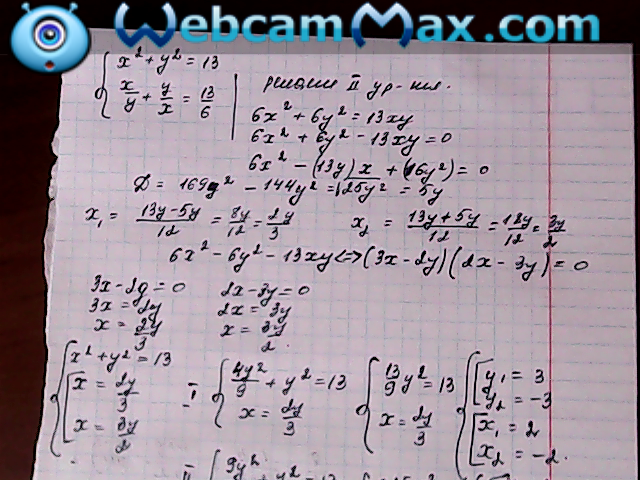 WebcamMax.com
x² + y² = 13
x/y + y/x = 13/6
решаем II ур-ние.
6x² + 6y² = 13xy
6x² + 6y² - 13xy = 0
6x² - (13y)x + (6y²) = 0
D = 169y² - 144y² = √25y² = 5y
x₁ = (13y-5y)/12 = 8y/12 = 2y/3    x₂ = (13y+5y)/12 = 18y/12 = 3y/2
6x² - 6y² - 13xy <=> (3x-2y)(2x-3y) = 0
3x-2y=0    2x-3y=0
3x = 2y    2x = 3y
x = 2y/3    x = 3y/2
{ x² + y² = 13 [ x = 2y/3 x = 3y/2
I { 4y²/9 + y² = 13 x = 2y/3
{ 13/9 y² = 13 x = 2y/3
{ [ y₁ = 3 y₂ = -3 [ x₁ = 2 x₂ = -2.
II { 9y²